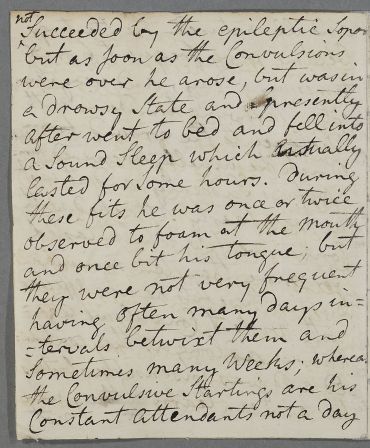 not
Succeeded by the epileptic Sopor
but as soon as the Convulsions
were over he arose, but was in
a drowsy State and presently
after went to bed and fell into
a Sound Sleep which usually
lasted for some hours. During
these fits he was once or twice
observed to foam at the mouth
and once bit his tongue; but
they were not very frequent
having often many days in=
=tervals betwixt them and
Sometimes many Weeks; whereas
the Convulsive Startings are his
Constant attendants not a day